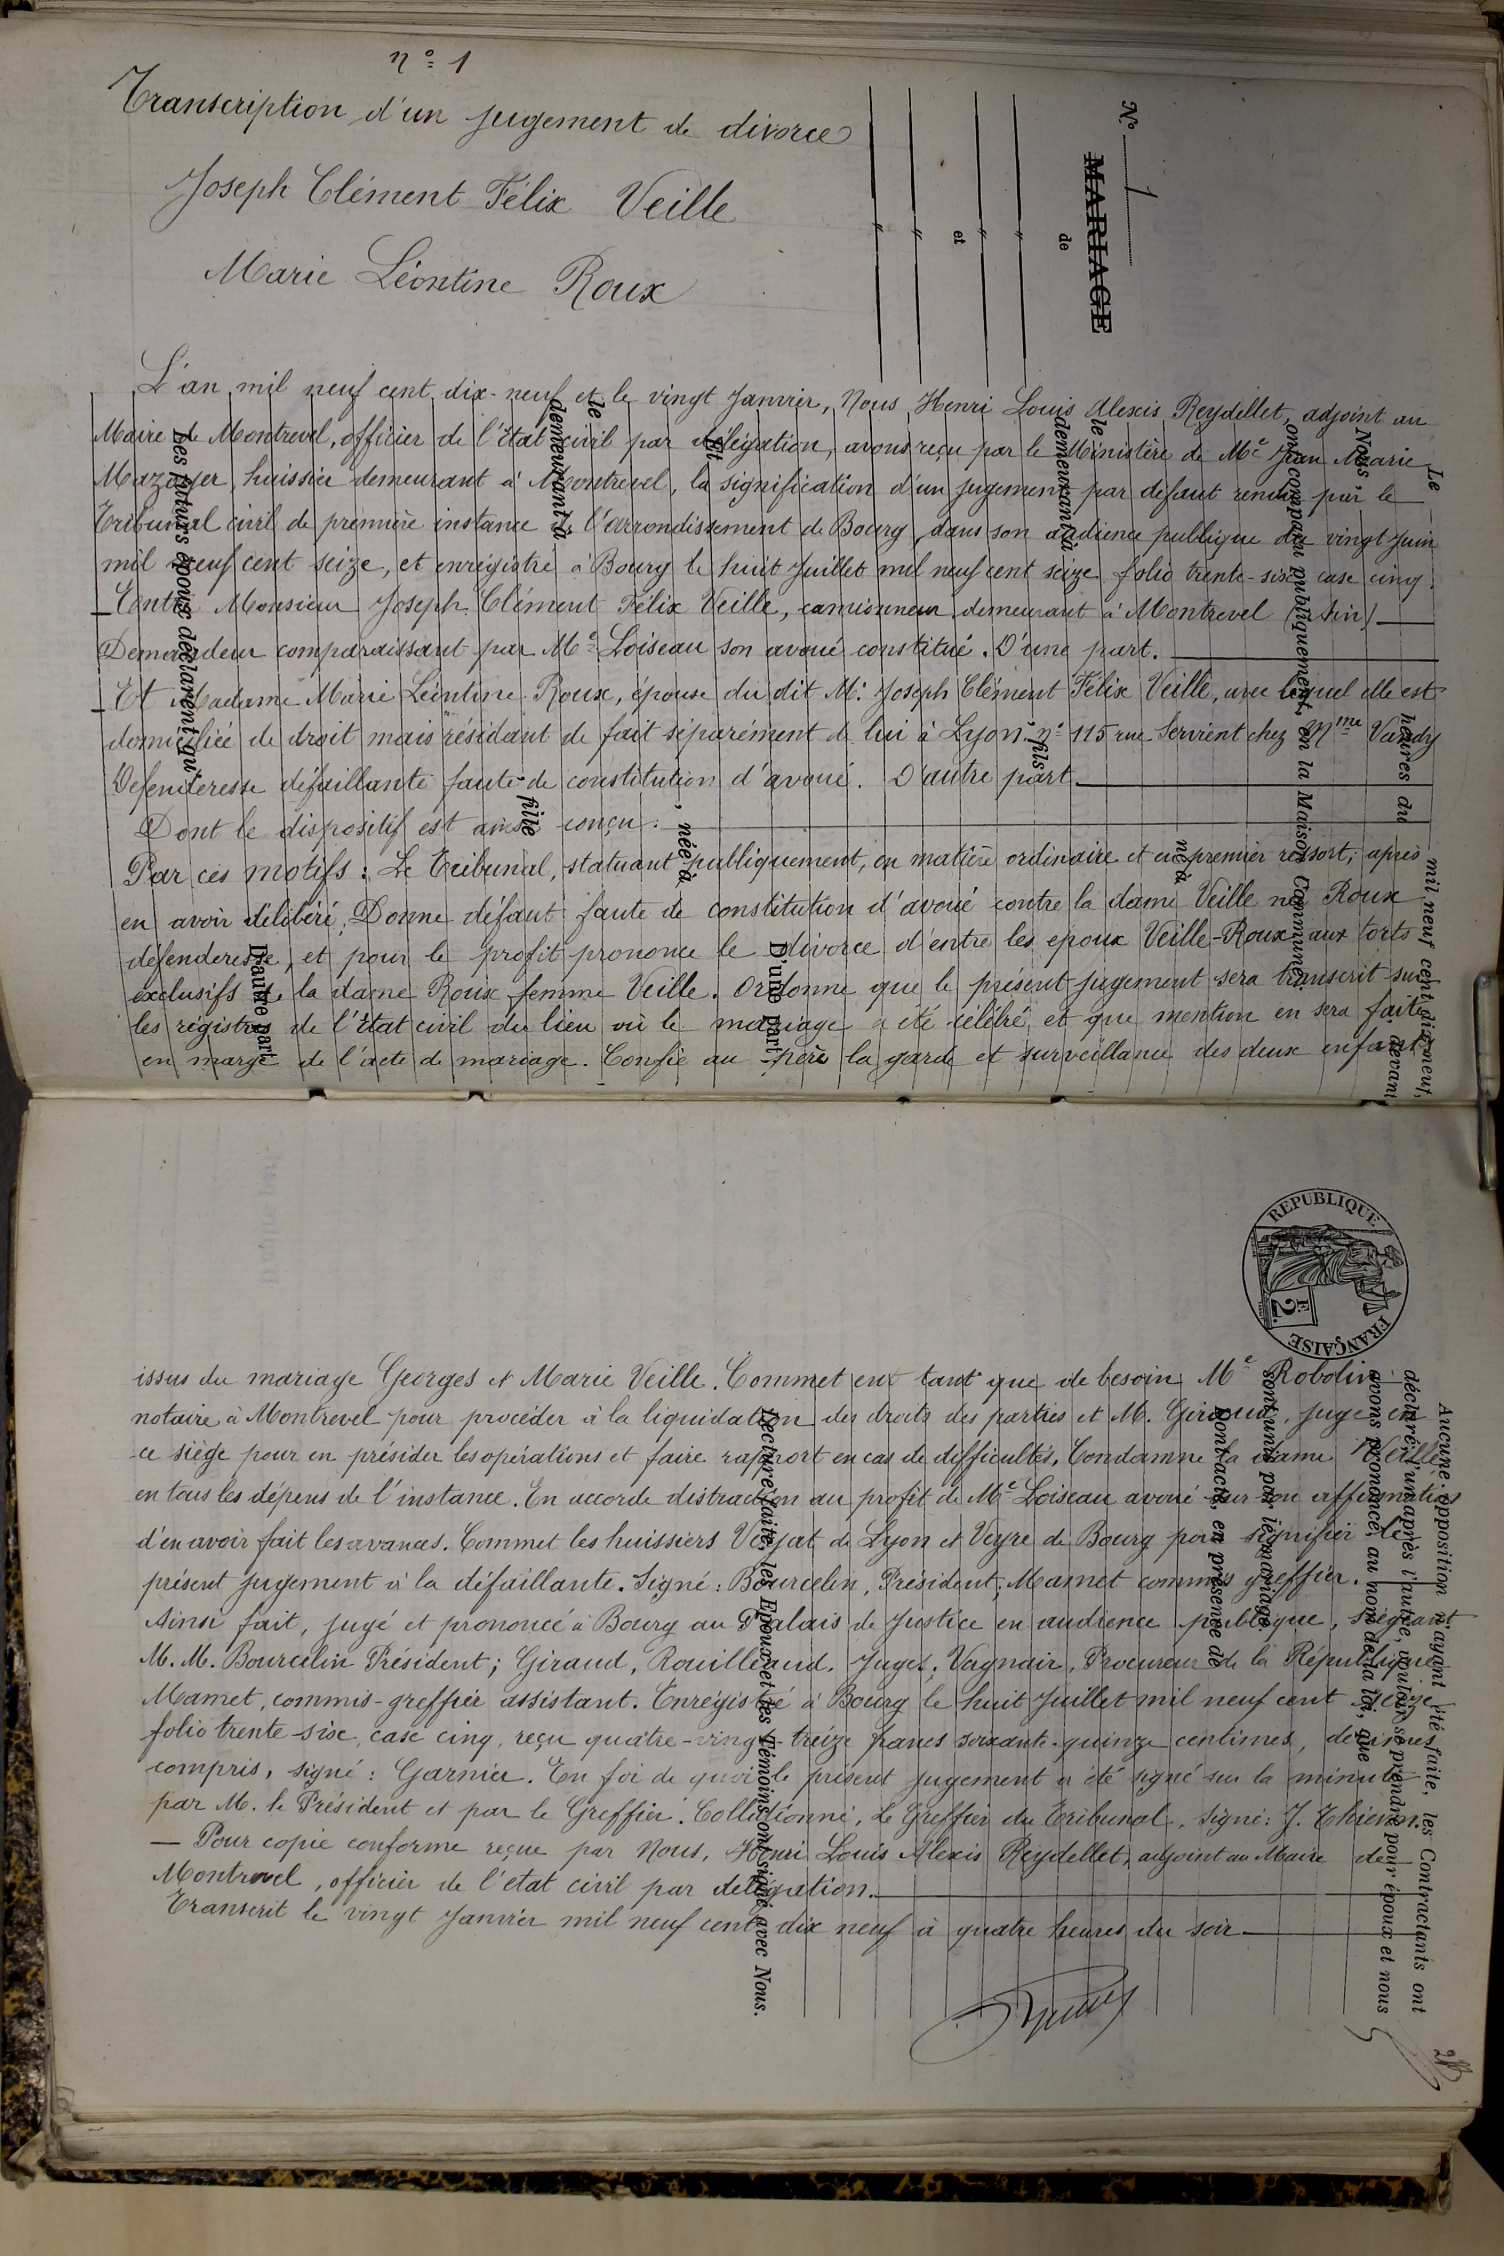 n° 1
Transcription d'un jugement de divorce
Joseph Clément Félix Veille
Marie Léontine Roux
N° 1
MARIAGE
de
et
L'an mil neuf cent dix-neuf et le vingt Janvier, Nous Henri Louis Alexis Reydellet, adjoint au
Maire de Montrevel, officier de l'État civil par délégation, avons reçu par le Ministère de Me Jean Marie
Mazoyer, huissier demeurant à Montrevel, la signification d'un jugement par défaut rendu par le
Tribunal civil de première instance de l'arrondissement de Bourg, dans son audience publique du vingt Juin
mil neuf cent seize, et enregistré à Bourg le huit Juillet mil neuf cent seize folio trente-six case cinq.
Entre Monsieur Joseph Clément Félix Veille, camionneur demeurant à Montrevel (Ain)
Demandeur comparaissant par Me Loiseau son avoué constitué. D'une part.
Et Madame Marie Léontine Roux, épouse du dit M. Joseph Clément Félix Veille, avec lequel elle est
domiciliée de droit mais résidant de fait séparément de lui à Lyon n° 115 rue Servient chez Mme Vandy
Défenderesse défaillante faute de constitution d'avoué. D'autre part.
Dont le dispositif est ainsi conçu :
Par ces motifs : Le Tribunal, statuant publiquement, en matière ordinaire et en premier ressort, après
en avoir délibéré, Donne défaut faute de constitution d'avoué contre la dame Veille née Roux
défenderesse, et pour le profit prononce le divorce d'entre les époux Veille-Roux aux torts
exclusifs de la dame Roux femme Veille. Ordonne que le présent jugement sera transcrit sur
les régistres de l'État civil du lieu où le mariage a été célébré et que mention en sera faite
en marge de l'acte de mariage. Confie au père la garde et surveillance des deux enfants
Le heures du mil neuf cent dix-neuf,
Nous , devant
ont comparu publiquement, en la Maison Commune :
né à
le
demeurant à
fils
D'une part,
Et
née à
le
demeurant à
fille
D'autre part.
Les futurs époux déclarent qu'
REPUBLIQUE FRANÇAISE
2 F.
issus du mariage Georges et Marie Veille. Commet en tant que de besoin Me Robolin
notaire à Montrevel pour procéder à la liquidation des droits des parties et M. Giraud, Juge en
ce siège pour en présider les opérations et faire rapport en cas de difficultés. Condamne la dame Veille
en tous les dépens de l'instance. En accorde distraction au profit de Me Loiseau avoué sur son affirmation
d'en avoir fait les avances. Commet les huissiers Veyrat de Lyon et Veyre de Bourg pour signifier le
présent jugement à la défaillante. Signé : Bourcelin, Président; Mamet commis greffier.
Ainsi fait, jugé et prononcé à Bourg au Palais de Justice en audience publique, siégeant
M. M. Bourcelin Président; Giraud, Rouilleaud, Juges; Vagnair, Procureur de la République,
Mamet, commis-greffier assistant. Enregistré à Bourg le huit Juillet mil neuf cent seize
folio trente-six, case cinq, reçu quatre-vingt-treize francs soixante-quinze centimes, décimes
compris, signé : Garnier. En foi de quoi le présent jugement a été signé sur la minute
par M. le Président et par le Greffier. Collationné, Le Greffier du Tribunal, signé : J. Thievon.
Pour copie conforme reçue par Nous, Henri Louis Alexis Reydellet, adjoint au Maire de
Montrevel, officier de l'état civil par délégation.
Transcrit le vingt Janvier mil neuf cent dix neuf à quatre heures du soir
Aucune opposition n'ayant été faite, les Contractants ont
déclaré, l'un après l'autre, vouloir se prendre pour époux et nous
avons prononcé, au nom de la loi, que
sont unis par le mariage.
Dont acte, en présence de
Lecture faite, les Epoux et les Témoins ont signé avec Nous.